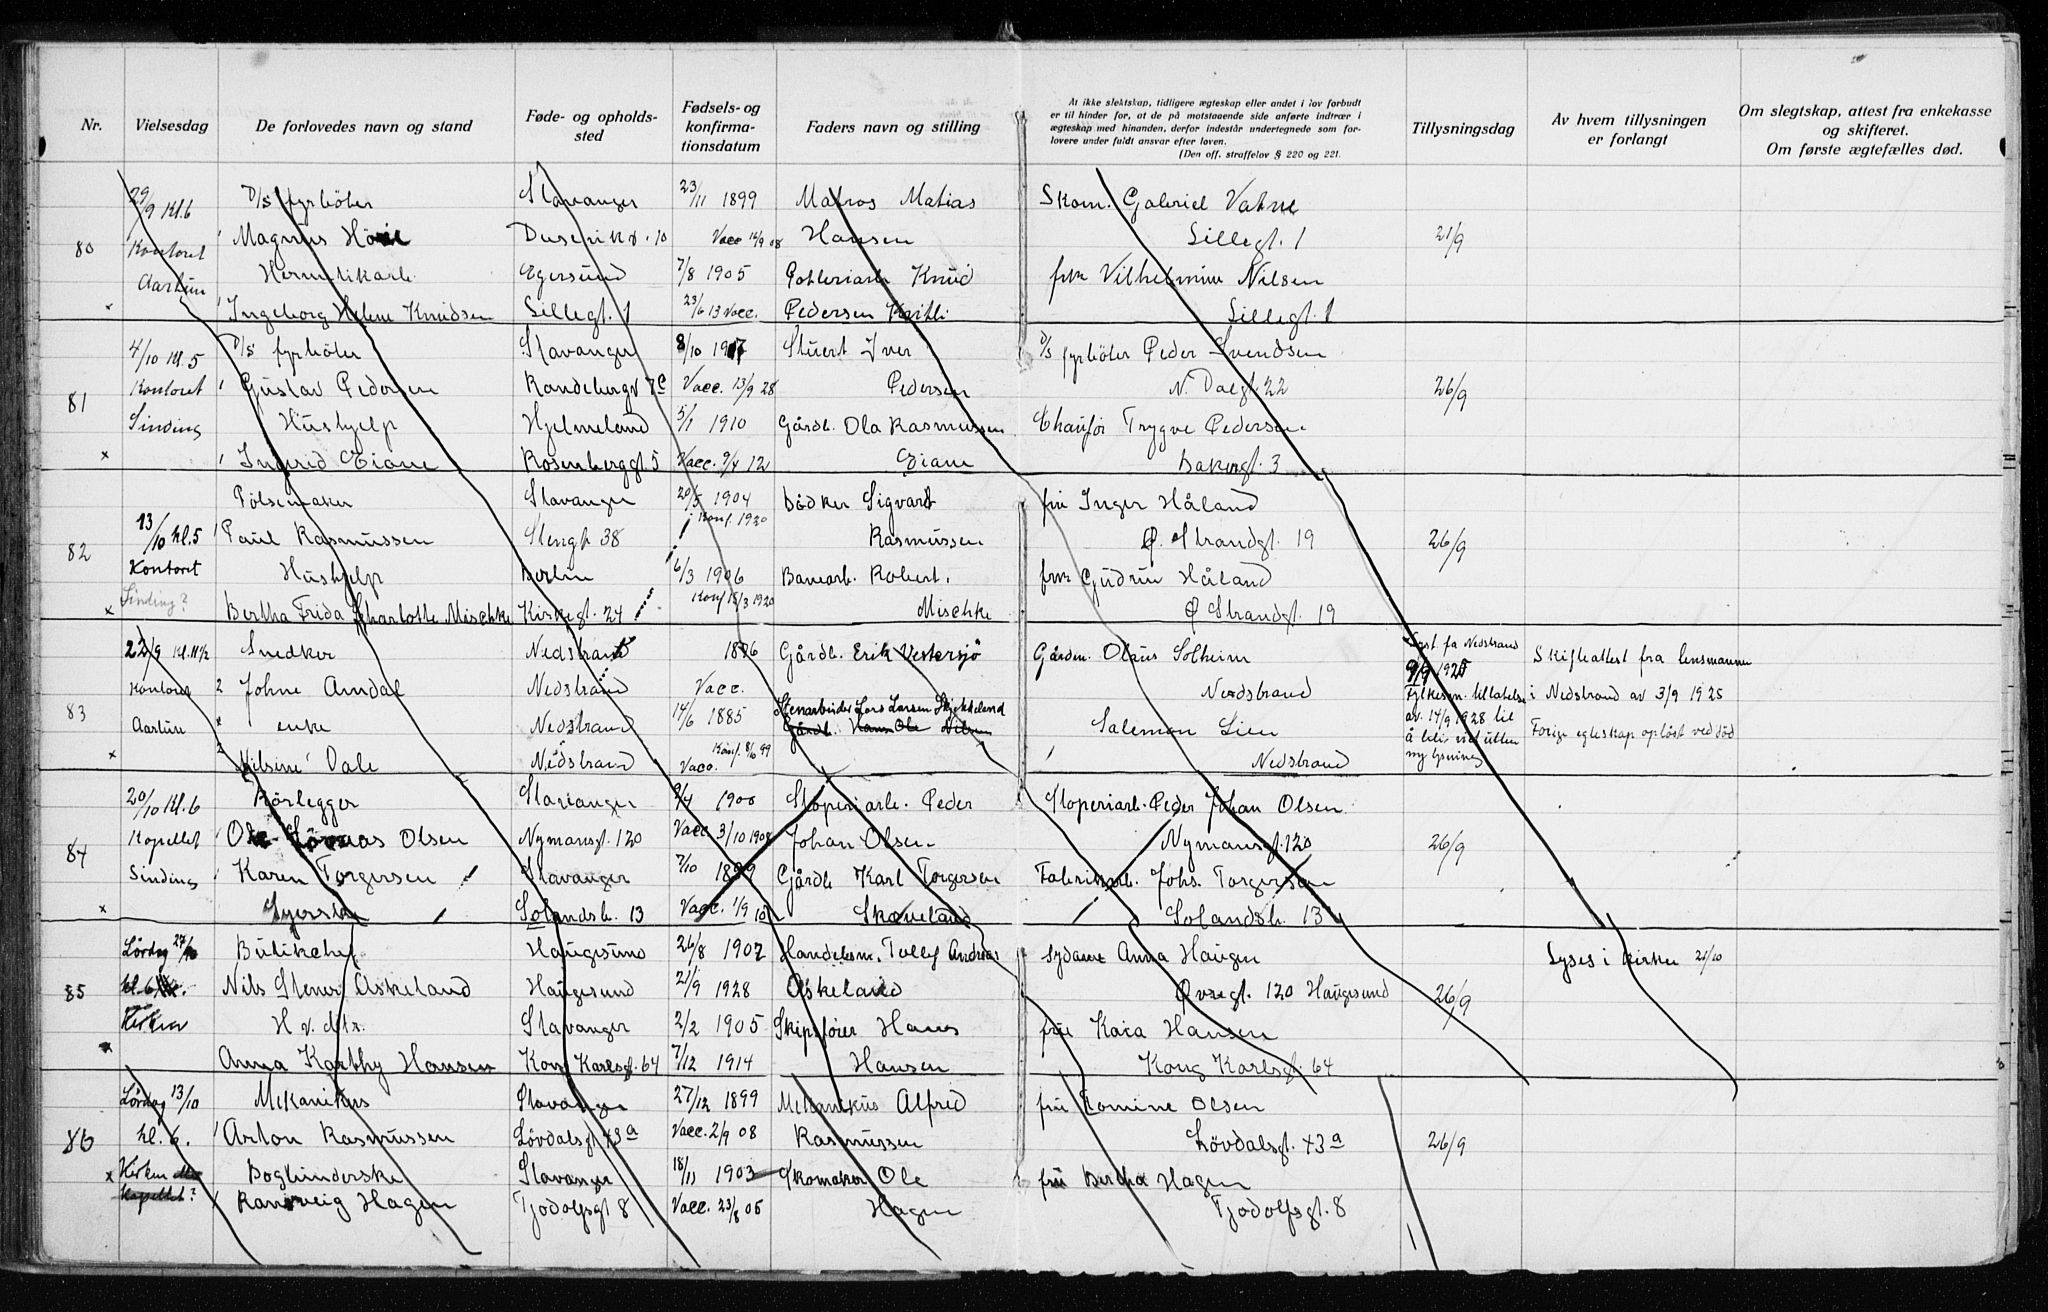 Nr.
Vielsesdag
De forlovedes navn og stand
Føde- og opholds-
sted
Fødsels- og
konfirma-
tionsdatum
Faders navn og stilling
At ikke slektskap, tidligere ægteskap eller andet i lov forbudt
er til hinder for, at de på motstaaende side anførte indtrær i
ægteskap med hinanden, derfor indestår undertegnede som for-
lovere under fuldt ansvar efter loven.
(Den off. straffelov § 220 og 221.
Tillysningsdag
Av hvem tillysningen
er forlangt
Om slegtskap, attest fra enkekasse
og skifteret.
Om første ægtefælles død.
29/9 Kl. 6 D/s fyrbøter Stavanger 23/11 1899 Matros Matias Skom. Gabriel Vatne
80 Kontoret Magnus Duserikv. 10 Vacc 08 Hansen Lillegt. 1 21/9
Aartun Hermetikarb. Egersund 7/8 1905 Potteriarb. Knud frk Vilhelmine Nilsen
x Ingeborg Helene Knudsen Lillegt. 1 23/6 13 Vacc. Pedersen Lillegt. 1
4/10 Kl. 5 D/s fyrbøter Stavanger 8/10 1907 Stuert Iver D/s fyrbøter Peder Svendsen
81 Kontoret Gustav Pedersen Randebergv 7c Vacc. 13/9 28 Pedersen N. Dalgt 22 26/9
Sinding Hushjelp Hjelmeland 5/1 1910 Gårdb. Ola Rasmussen Chauför Trygve Pedersen
x Ingrid Eiane Rosenberggt. 5 Vacc. 9/4 12 Eiane Bakergt. 3
Pölsemaker Stavanger 20/5 1904 Bödker Sigvard fru Inger Håland
Konf. 1920
82 13/10 kl. 5 Paul Rasmussen Stengt 38 Rasmussen Ø. Strandgt. 19 26/9
Kontoret Hushjelp Berlin 6/3 1906 Banearb. Robert. frk Gudrun Håland
x Sinding? Bertha Frida Charlotte Mischke Kirkegt. 24 Konf 15/3 1920 Mischke Ø Strandgt. 19
22/9 Kl. 11 1/2 Snedker Nedstrand Gårdb. Erik Vestersjö Gårdm. Olaus Solheim Lyst fra Nedstrand Skifteattest fra lensmannen
Kontoret Johne Amdal Nedstrand Vacc. Nedstrand i Nedstrand av 3/9 1925
83 Aartun enke Nedstrand 14/6 1885 Stenarbeider Lars Larsen Gårdb. Hans Ole Nilsen Salemon Lien av 14/9 1928 til Forige egteskap oplöst ved död
x Nilsine Dale Nedstrand Vacc. Konf. 8/10 99 Nedstrand å bli viet uten ny lysning
20/10 Kl. 6 Rörlegger Stavanger 9/4 1900 Stoperiarb. Peder Stoperiarb. Peder Johan Olsen
84 Kapellet Olsen Nymansgt. 120 Vacc 3/10 1908 Johan Olsen Nymansgt. 120 26/9
Sinding Karen Torgersen Stavanger 7/10 1899 Gårdb Karl Torgersen Fabrikarb. Johs. Torgersen
x Syerske Solandsb. 13 Vacc. 1/9 10 Skaveland Solandsb. 13
Lørdag 27/10 Butikchef Haugesund 26/8 1902 Handelsm. Tollef Andreas Sydame Anna Haugen Lyses i kirken 21/10
85 kl. 6 Nils Stener Askeland Haugesund 21/9 1928 Askeland Øvregt. 120 Haugesund 26/9
Kirken H v. dtr. Stavanger 2/2 1905 Skipsfører Hans frue Kaia Hansen
x Anna Karthy Hansen Kong Karlsgt. 64 7/12 1914 Hansen Kong Karlsgt. 64
Lørdag 13/10 Mekanikus Stavanger 27/12 1899 Mekanikus Alfred fru Tomine Olsen
86 kl. 6. Anton Rasmussen Lövdalsgt 43a Vacc. 2/9 08 Rasmussen Lövdalsgt. 43a 26/9
x Kirken Bogbinderske Stavanger 18/11 1903 Skomaker Ole fru Bertha Hagen
Kapellet? Ranveig Hagen Tjodolfsgt 8 Vacc. 23/8 05 Hagen Tjodolfsgt. 8